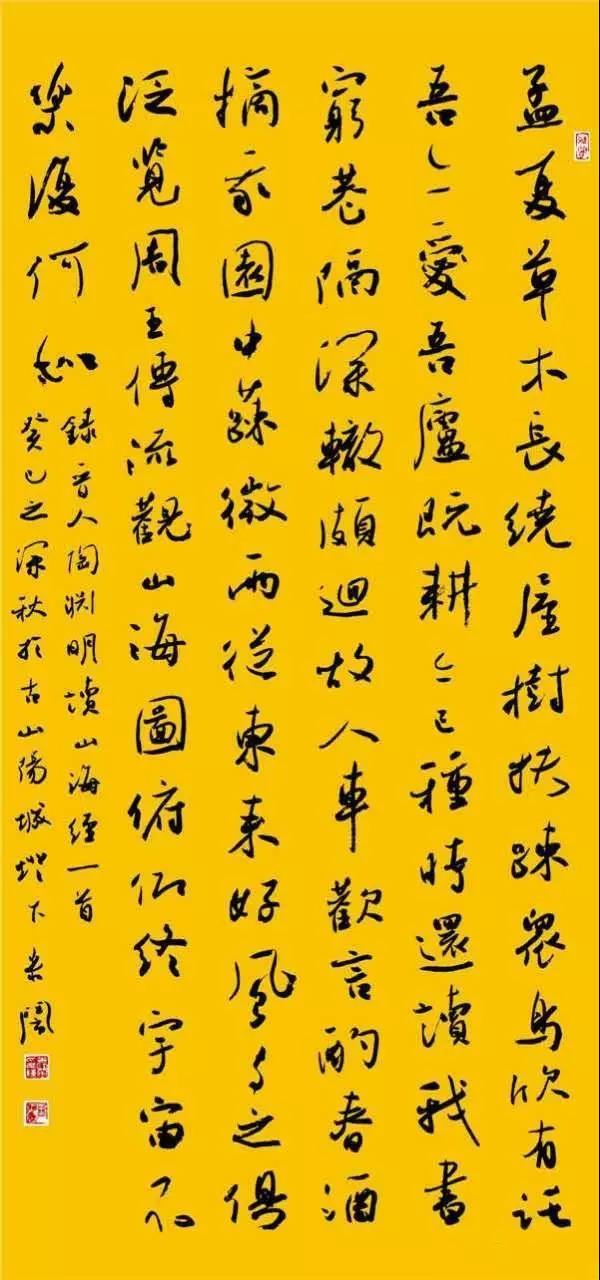 孟夏草木長繞屋樹扶踈眾鳥欣有託
吾亦愛吾廬既耕亦已種時還讀我書
窮巷隔深轍頗迴故人車歡言酌春酒
摘我園中蔬微雨從東來好風与之俱
泛覽周王傳流觀山海圖俯仰終宇宙不
樂復何如
錄晉人陶淵明讀山海經一首
癸巳之深秋於古山陽城下